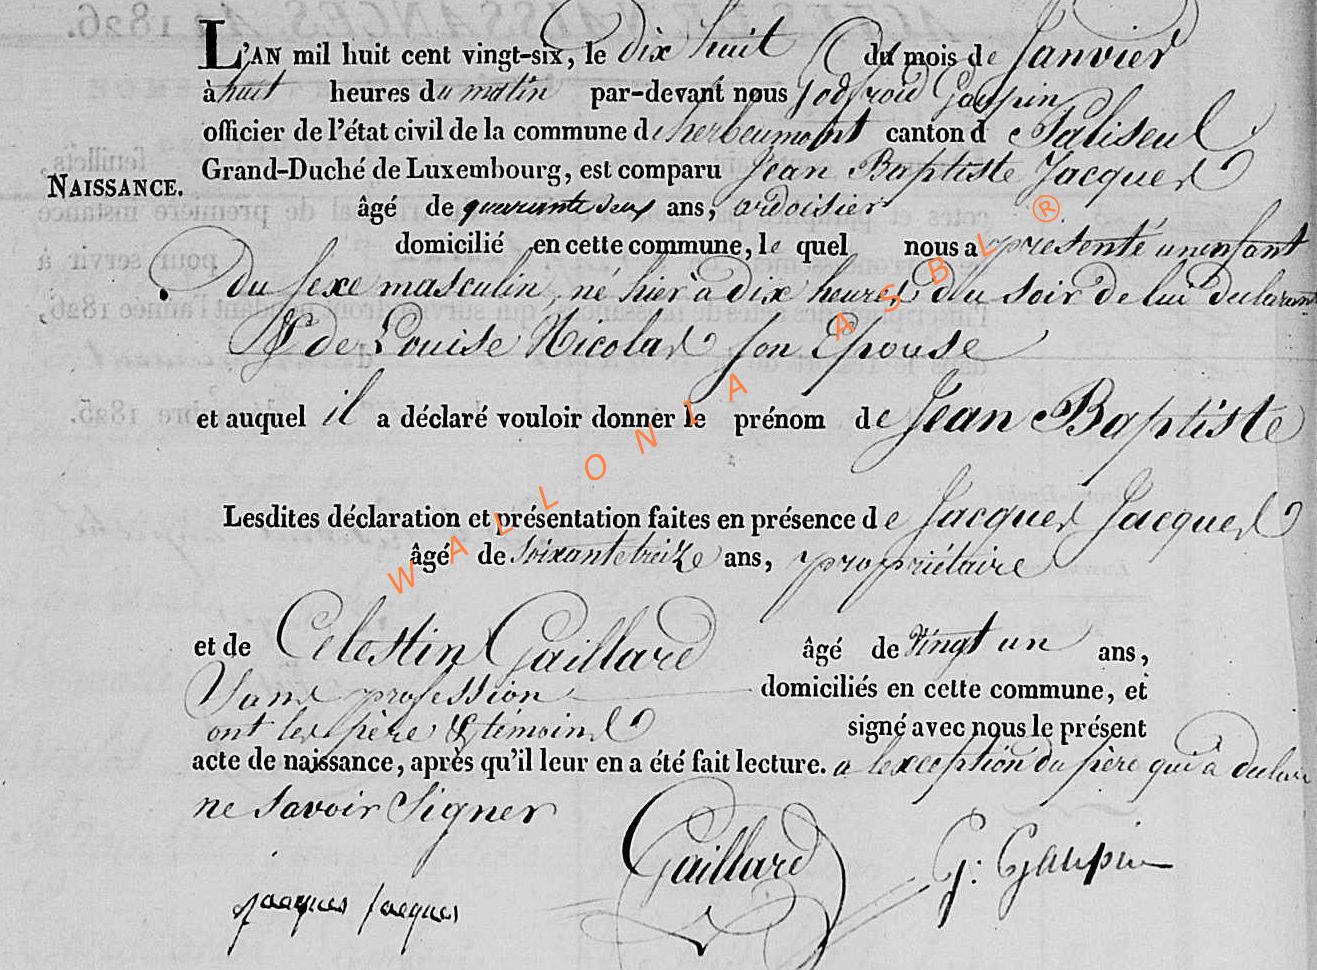 L'AN mil huit cent vingt-six, le dix huit du mois de Janvier
à huit heures du matin par-devant nous Godfroid Gaupin
officier de l'état civil de la commune de herbeumont canton de Paliseul
Grand-Duché de Luxembourg, est comparu Jean Baptiste Jacques
NAISSANCE.
âgé de quarante deux ans, ardoisier
domicilié en cette commune, le quel nous a présenté un enfant
du sexe masculin, né hier à dix heures du soir de lui déclarant
& de Louise Nicolas son Epouse
et auquel il a déclaré vouloir donner le prénom de Jean Baptiste
Lesdites déclaration et présentation faites en présence de Jacques Jacques
âgé de soixante treize ans, propriétaire
et de Celestin Gaillard âgé de Vingt un ans,
Sans profession domiciliés en cette commune, et
ont les père & témoins signé avec nous le présent
acte de naissance, après qu'il leur en a été fait lecture. a l'exception du père qui a déclaré
ne savoir signer
jacques jacques Gaillard G: Gaupin
WALLONIA ASBL ®